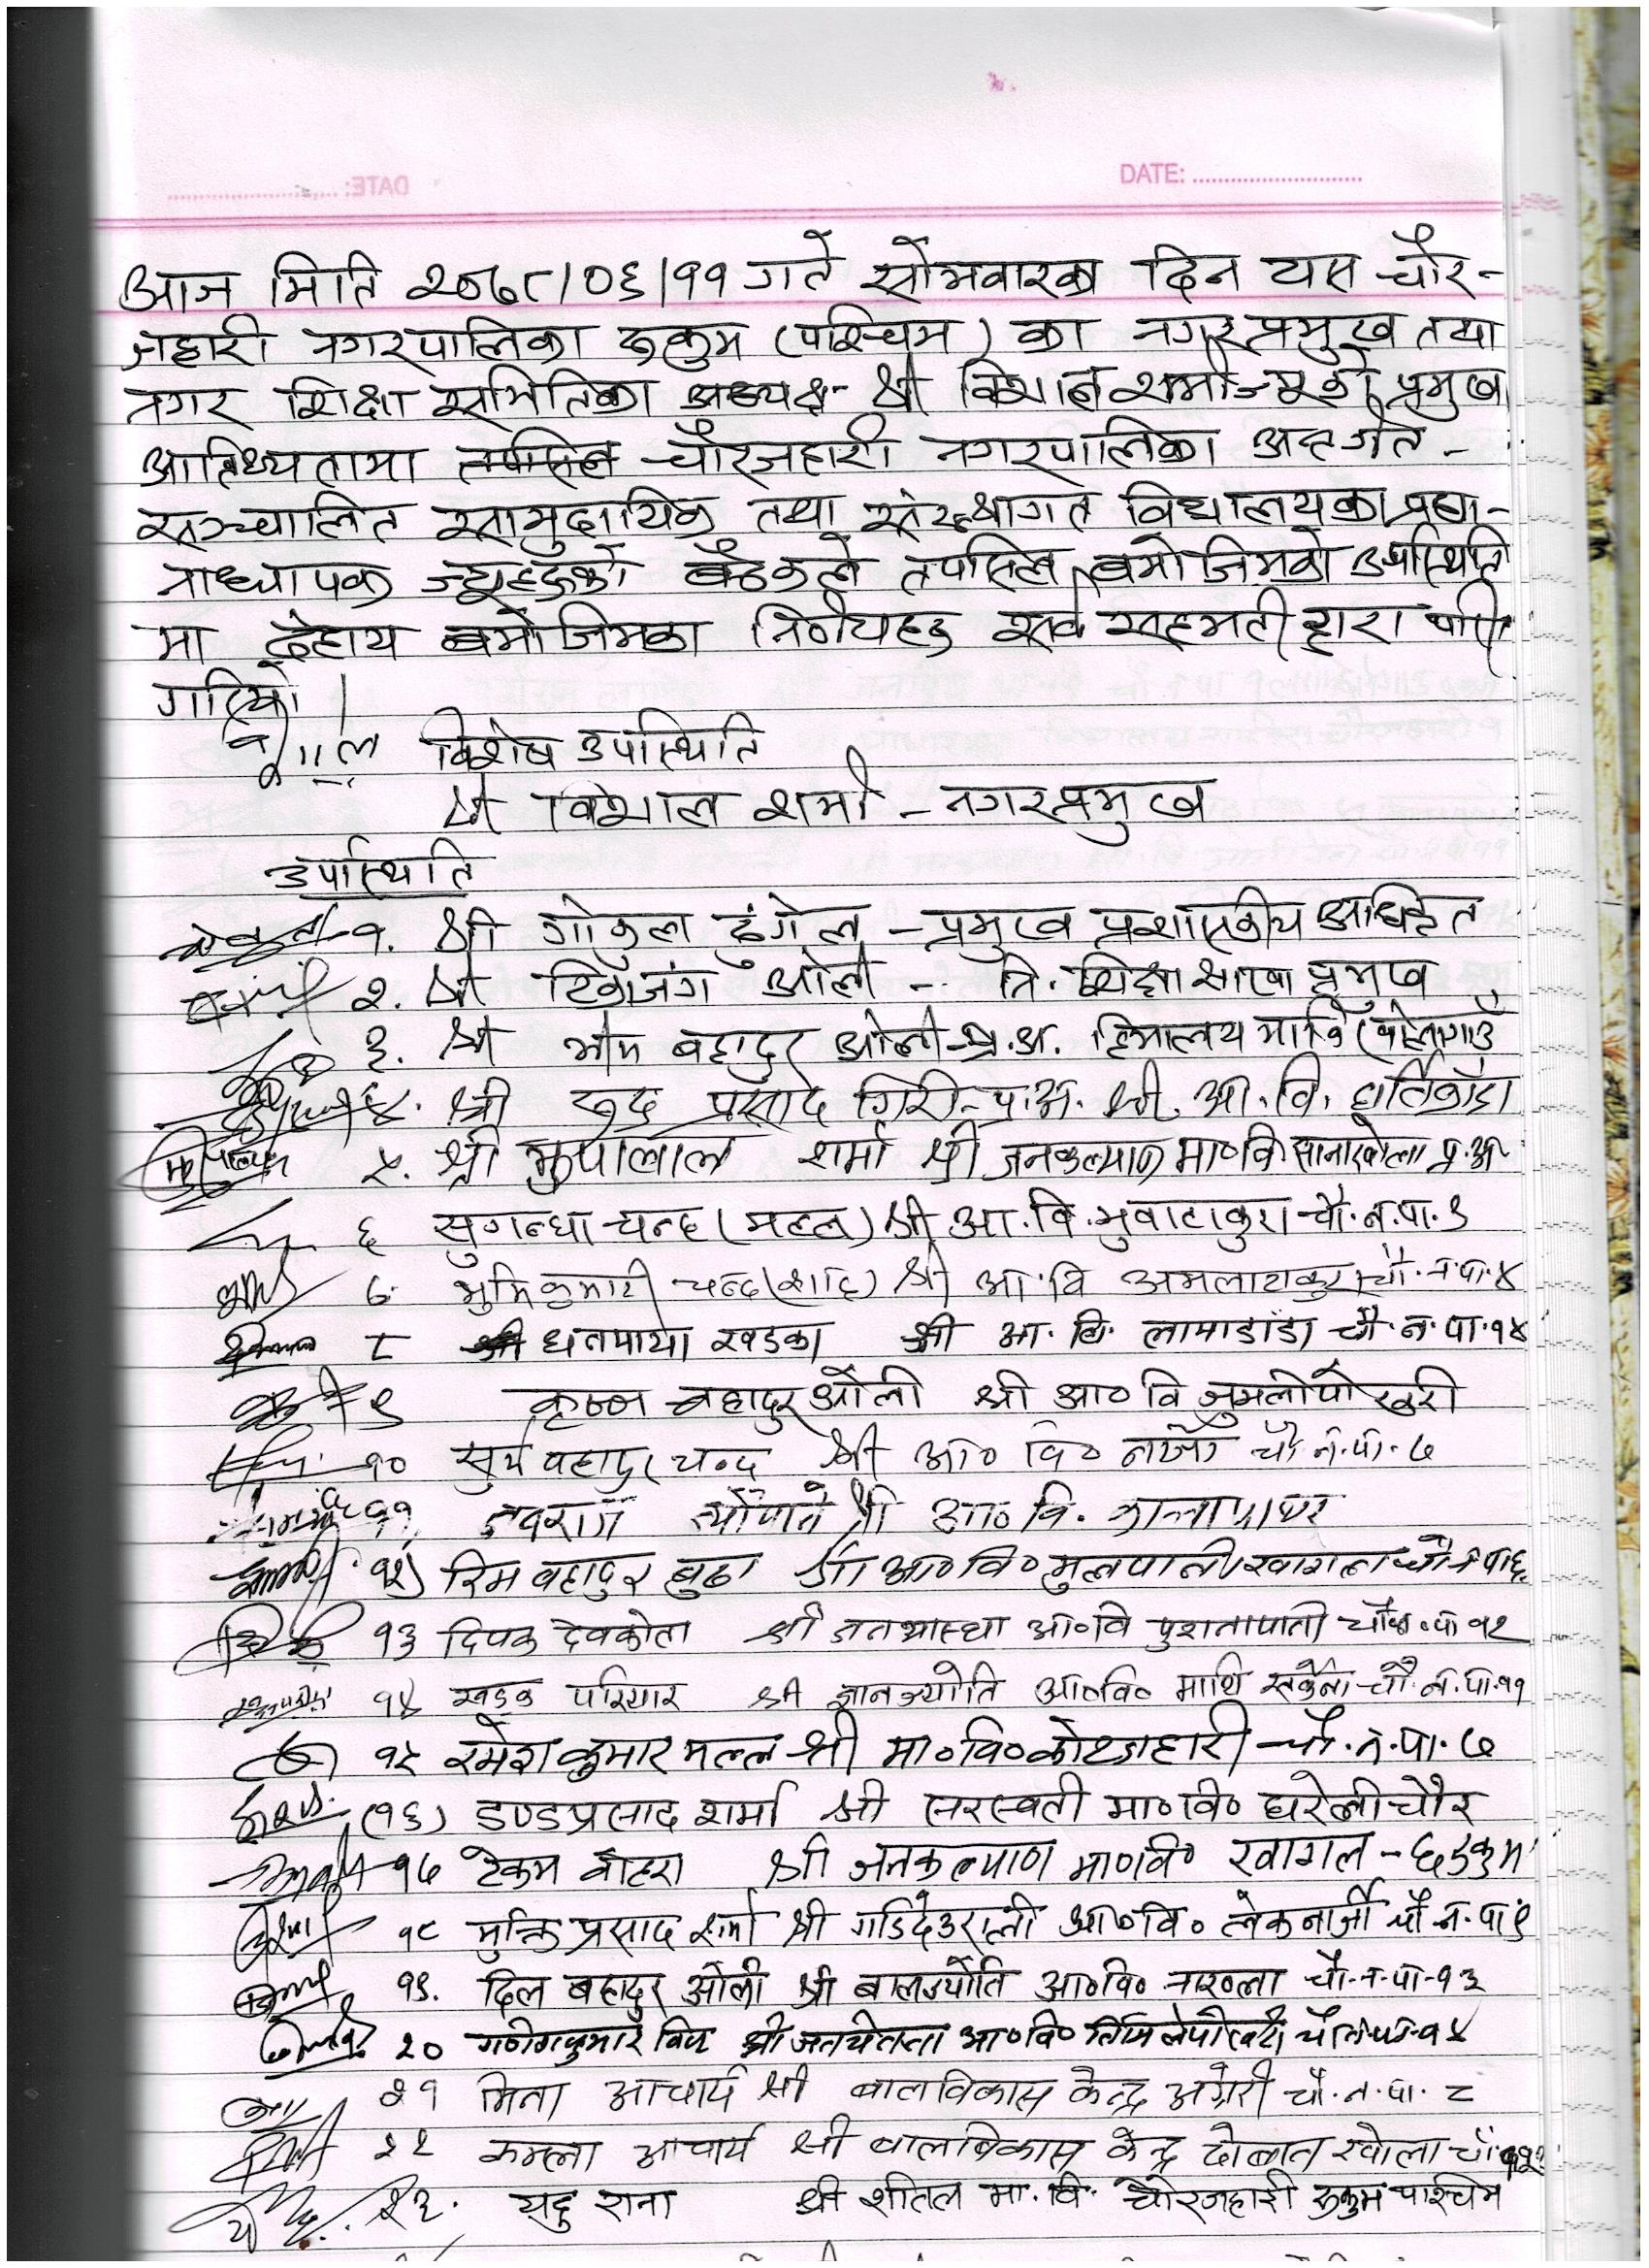 DATE: ...........................
आज मिति २०७८/०६/११ गते सोमवारका दिन यस चौर-
जहारी नगरपालिका रुकुम (पश्चिम) का नगर प्रमुख तथा
नगर शिक्षा समितिका अध्यक्ष श्री विशाल शर्माज्यूको प्रमुख
आतिथ्यतामा चौरजहारी नगरपालिका अन्तर्गत -
सञ्चालित सामुदायिक तथा संस्थागत विद्यालयका प्रधा-
नाध्यापक ज्यूहरुको बैठकले तपसिल बमोजिमको उपस्थिति
मा देहाय बमोजिमका निर्णयहरु सर्व सहमती द्वारा पारित
गरियो ।
विशेष उपस्थिति
श्री विशाल शर्मा - नगरप्रमुख
उपस्थिति
१. श्री गोकुल ढुंगेल - प्रमुख प्रशासकीय अधिकृत
२. श्री टिकाजंग ओली - नि. शिक्षा शाखा प्रमुख
३. श्री भीम बहादुर ओली-प्र.अ. हिमालय मावि
४. श्री रुद्र प्रसाद गिरी-प्र.अ. श्री. आ. वि.
५. श्री झुपालाल शर्मा श्री जनकल्याण मा०वि सानाखोला प्र.अ
६ सुगन्धा चन्द (मल्ल) श्री आ. वि. भुवाटाकुरा चौ. न. पा. ९
७. भुमि कुमारी चन्द (शाहि) श्री आ. वि अमलाटाकुरा चौ. न. पा. ४
८ श्री धनमाया खडका श्री आ. वि. लामाडांडा चौ. न. पा. १४
९ कृष्ण बहादुर ओली श्री आ० वि जुम्लीपोखरी
१० सुर्य वहादुर चन्द श्री आ० वि० चौ. न. पा. ७
११ नवराज न्यौपाने श्री आ० वि.
१२) रिम वहादुर बुढा श्री आ० वि० मुलपानी खागल चौ न पा ६
१३ दिपक देवकोटा श्री जनआस्था आ०वि पुरानापानी चौ. न. पा १२
१४ खडक परियार श्री ज्ञानज्योति आ०वि० माथि चौ. न. पा. ११
१५ रमेश कुमार मल्ल श्री मा०वि० कोटजहारी चौ. न. पा. ७
(१६) डण्डप्रसाद शर्मा श्री सरस्वती मा०वि० घरेलीचौर
१७ टेकम वोहरा श्री जनकल्याण मा०वि० खागल - ६ रुकुम
१८ मुक्ति प्रसाद शर्मा श्री गडिदेउराली आ०वि० चौ. न. पा ९
१९. दिल बहादुर ओली श्री बालज्योति आ०वि० चौ. न. पा. १३
२० विक श्री जनचेतना आ०वि० चौ न पा. १४
२१ मिना आचार्य श्री बालविकास केन्द्र अग्रेरी चौ. न. पा. ८
२२ कमला आचार्य श्री बालबिकास केन्द्र दोबात खोला चौ.
२३. यदु राना श्री शीतल मा. वि. चौरजहारी रुकुम पश्चिम